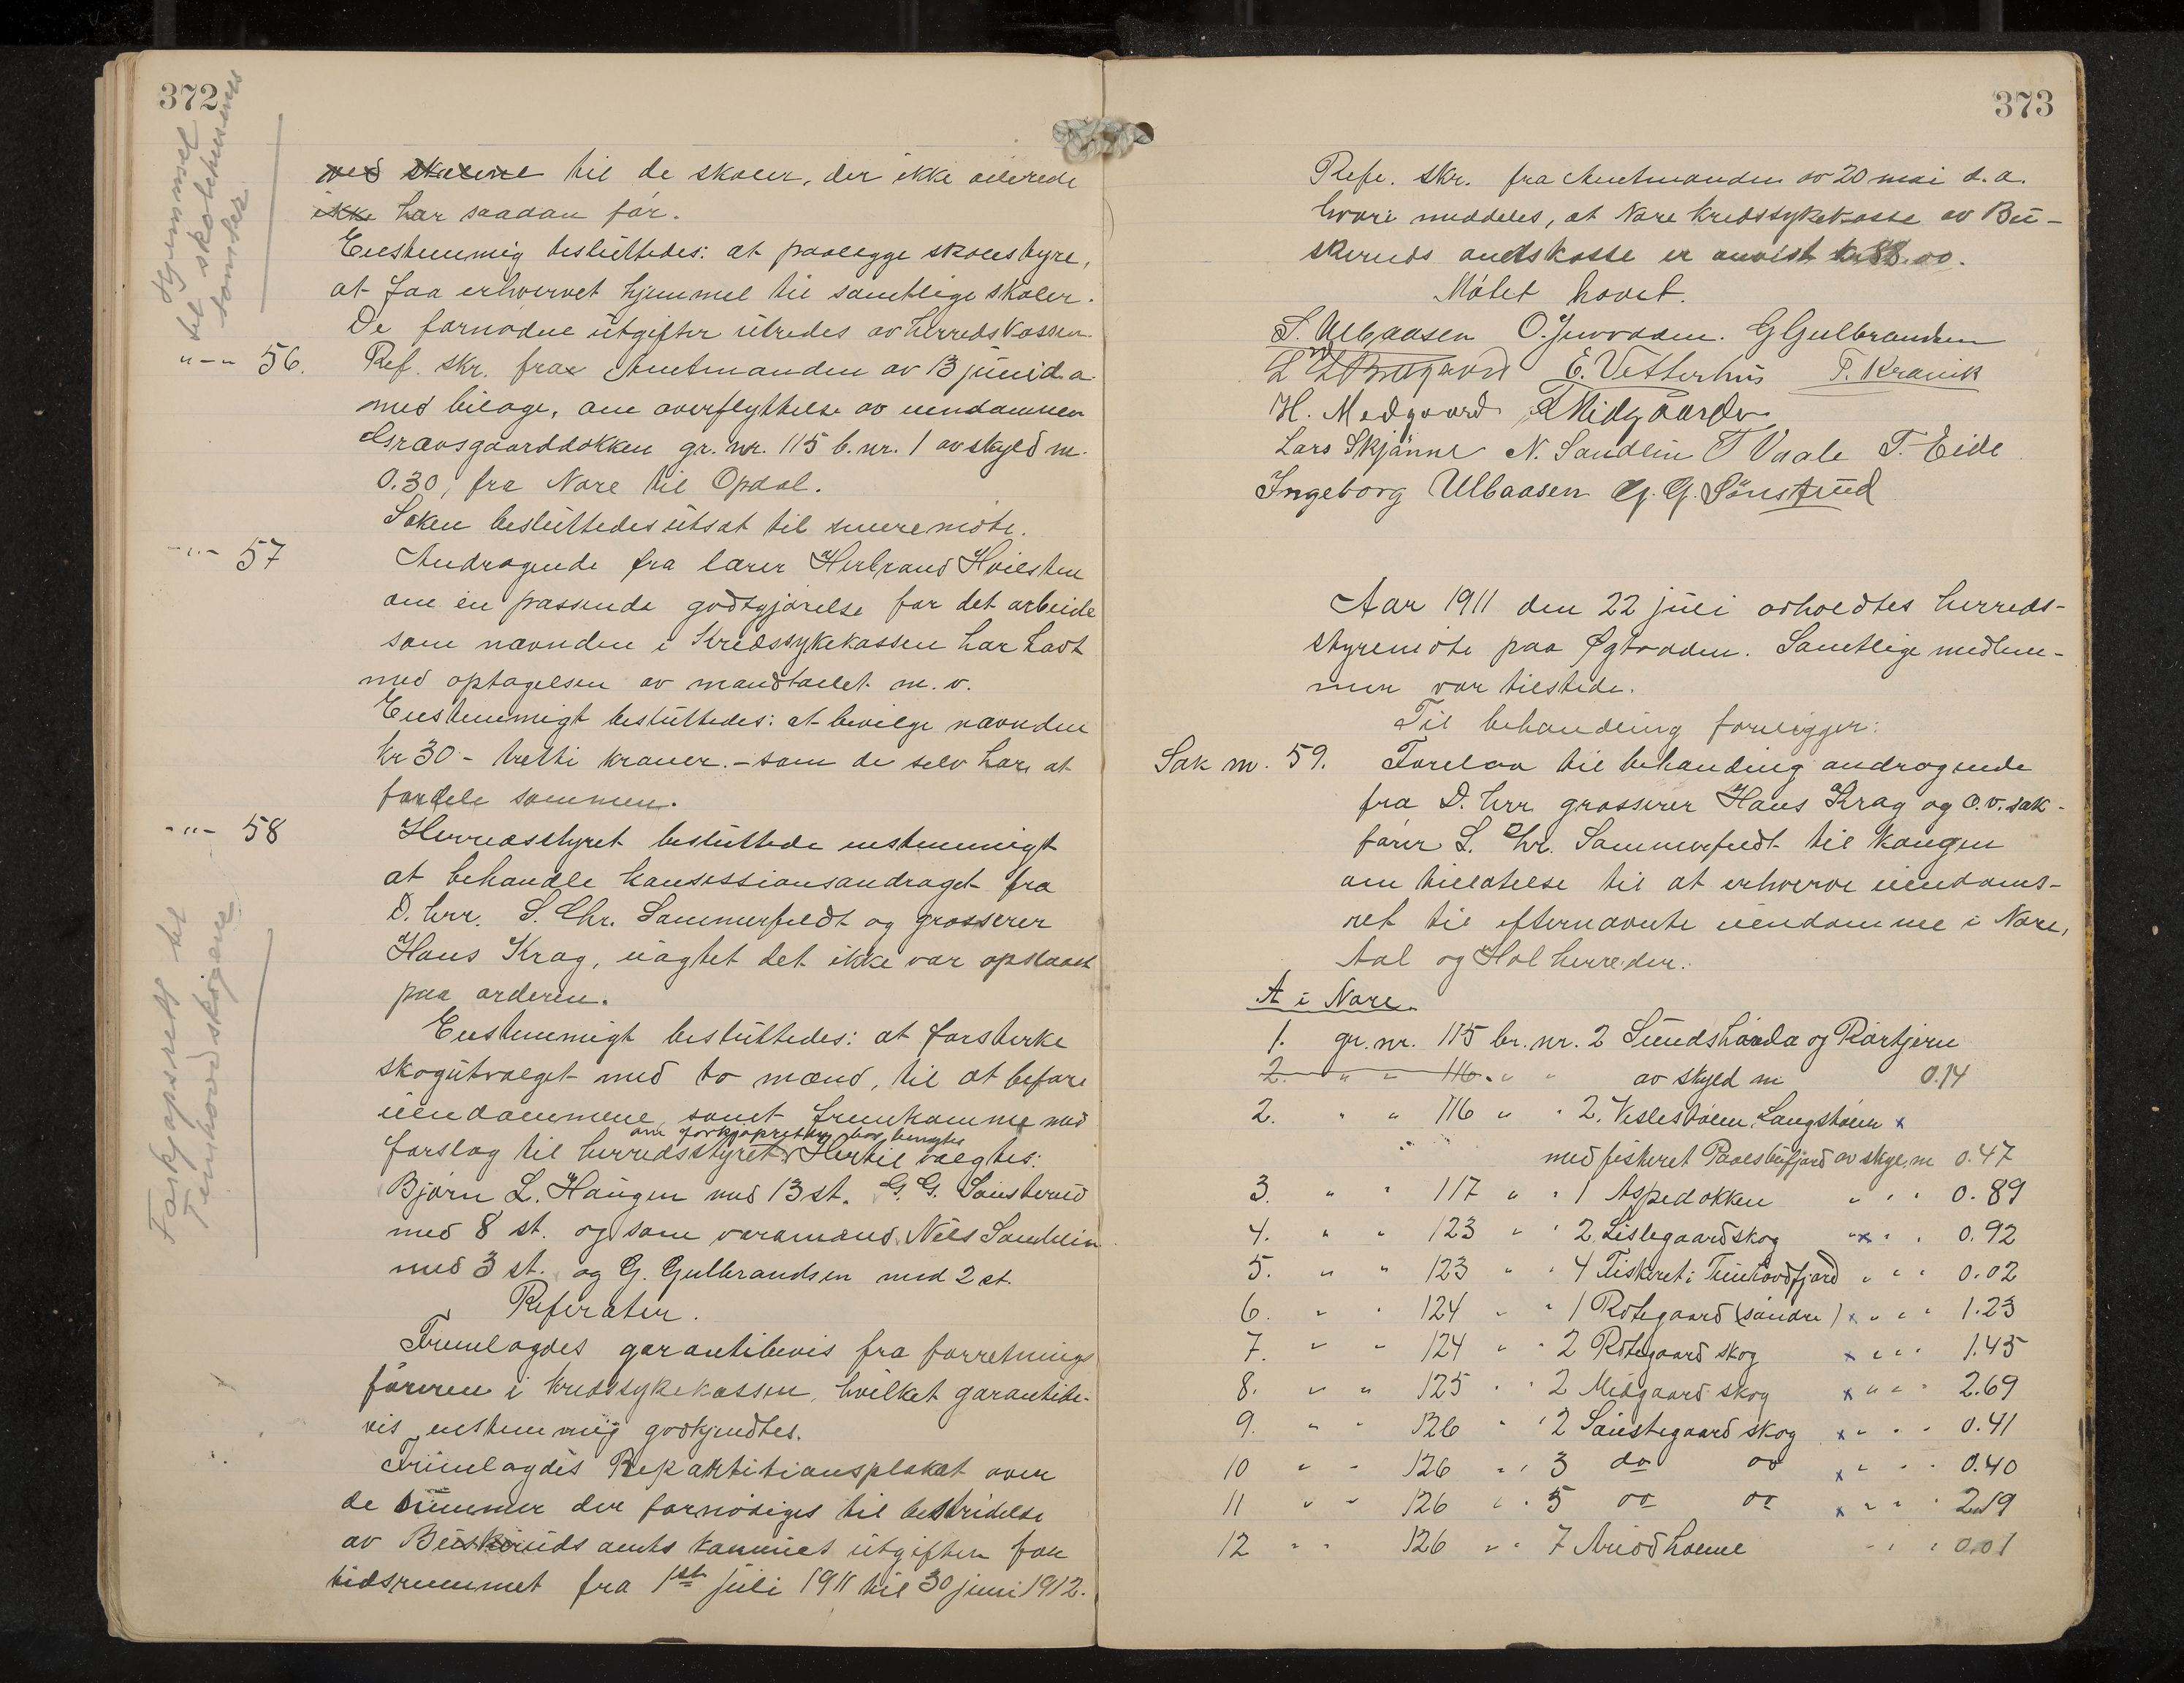 372
Hjemmel
til skolehusenes
tomter
ved skolene til de skoler, der ikke allerede
ikke har saadan før.
Enstemmig besluttedes: at paalegge skolestyre,
at faa erhvervet hjemmel til samtlige skoler.
De fornødne utgifter utredes av herredskassen
"-" 56. Ref. skr. fra Amtmanden av 13 juni d.a.
med bilage, om overflyttelse av eiendommen
Gravsgaarddokken gr. nr. 115 b.nr. 1 av skyld m.
0.30, fra Nore til Opdal.
Saken besluttedes utsat til senere møte.
-"- 57 Andragende fra lærer Herbrand Hvilsten
om en passende godtgjørelse for det arbeide
som nævnden i Kredssykekassen har havt
med optagelsen av mandtallet m.v.
Enstemmigt besluttedes: at bevilge nævnden
kr 30 - tretti kroner. - som de selv har at
fordele sommen.
-"- 58 Herredsstyret besluttede enstemmigt
at behandle konsessionsandraget fra
D. hrr. S. Chr. Sommerfeldt og grosserer
Hans Krag, uagtet det ikke var opslaat
paa orderen.
Forkjøpsrett til
Tunhovdskogene
Enstemmigt besluttedes: at forsterke
skogutvalget med to mænd, til at befare
eiendommene, samt fremkomme med
om forkjøpsretten bør benyttes
forslag til herredsstyret. Hertil valgtes:
Bjørn L. Haugen med 13 st. G. G. Sønsterud
med 8 st. og som varamænd Nils Sandlein
med 3 st. og G. Gulbrandsen med 2 st.
Referater.
Fremlagdes garantibevis fra forretnings
føreren i kredssykekassen, hvilket garantibe-
vis enstemmig godkjendtes.
Fremlagdes Repartitionsplakat over
de summer der fornødiges til bestridelse
av Buskeruds amts kommunes utgifter for
tidsrummet fra 1st juli 1911 til 30 juni 1912.
373
Refe. skr. fra Amtmanden av 20 mai d.a.
hvori meddeles, at Nore kredssykekasse av Bu-
skeruds amtskasse er anvist kr 88.00.
Møtet hævet.
S. Ulbaasen O. Juvodden. G Gulbrandsen
E. Vetterhus T. Kravik
H. Medgaard Midgaarden
Lars Skjønne N. Sandlein T Vaale T. Eide
Ingeborg Ulbaasen G. G. Sønsterud
Aar 1911 den 22 juli avholdtes herreds-
styremøte paa Øgtrødden. Samtlige medlem-
mer var tilstede.
Til behandling foreligger:
Sak nr. 59. Forelaa til behanding andragende
fra D. hrr grosserer Hans Krag og o.r.sak-
fører S. Chr. Sommerfeldt til kongen
om tillatelse til at erhverve eiendoms-
ret til efternævnte eiendomme i Nore,
Aal og Hol herreder:
A i Nore.
1. gr. nr. 115 br. nr. 2 Sundshovda og Rørtjern
2. " " 116. " " av skyld m 0.14
2. " " 116 " " 2. Veslestølen, Langstølen x
med fiskeret Paalsbufjord av skyl. m 0.47
3. " " 117 " " 1 Aspedokken " " " 0.89
4. " " 123 " " 2 Lislegaardskog "x " " 0.92
5. " " 123 " " 4 Fiskeret i Tunhovdfjord " " " 0.02
6. " " 124 " " 1 Rotegaard (søndre) x " " " 1.23
7. " " 124 " " 2 Rotegaard skog x " " " 1.45
8. " " 125 " " 2 Midgaard skog x " " " 2.69
9. " " 126 " " 2 Sønstegaard skog x " " " 0.41
10 " " 126 " " 3 do do x " " " 0.40
11 " " 126 " " 5 do do x " " " 2.19
12 " " 126 " " 7 " " " 0.01